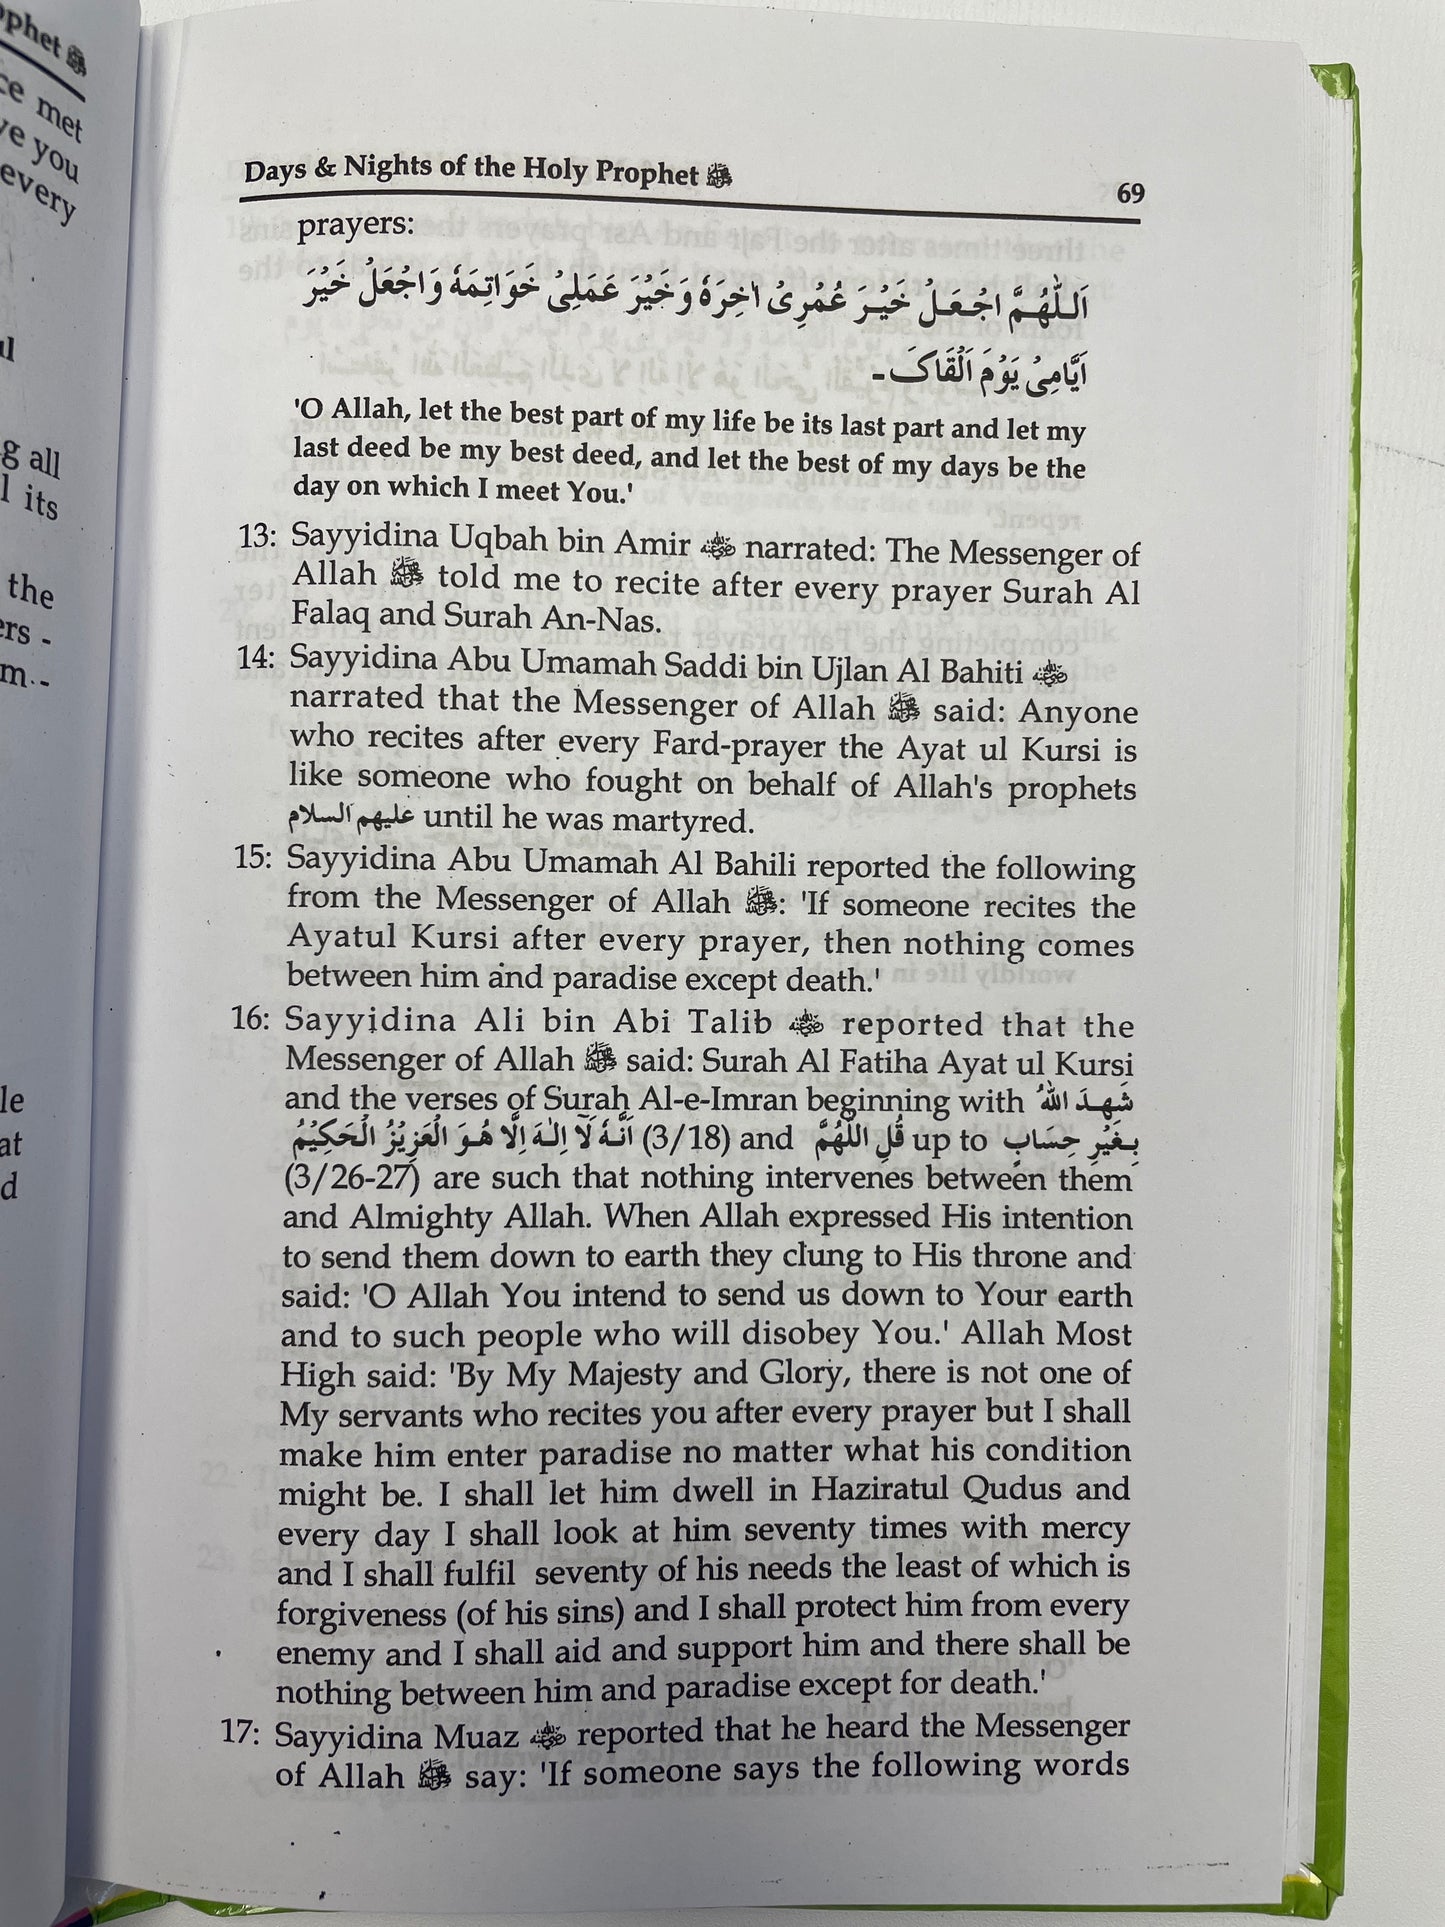 ophet ﷺ
ce met
ve you
every
ul
g all
l its
the
ers -
m.-
le
at
d
Days & Nights of the Holy Prophet ﷺ 69
prayers:
اَللّٰهُمَّ اجْعَلْ خَيْرَ عُمُرِىْ اٰخِرَهٗ وَخَيْرَ عَمَلِىْ خَوَاتِمَهٗ وَاجْعَلْ خَيْرَ
اَيَّامِىْ يَوْمَ اَلْقَاكَ۔
'O Allah, let the best part of my life be its last part and let my
last deed be my best deed, and let the best of my days be the
day on which I meet You.'
13: Sayyidina Uqbah bin Amir ؓ narrated: The Messenger of
Allah ﷺ told me to recite after every prayer Surah Al
Falaq and Surah An-Nas.
14: Sayyidina Abu Umamah Saddi bin Ujlan Al Bahiti ؓ
narrated that the Messenger of Allah ﷺ said: Anyone
who recites after every Fard-prayer the Ayat ul Kursi is
like someone who fought on behalf of Allah's prophets
عليهم السلام until he was martyred.
15: Sayyidina Abu Umamah Al Bahili reported the following
from the Messenger of Allah ﷺ: 'If someone recites the
Ayatul Kursi after every prayer, then nothing comes
between him and paradise except death.'
16: Sayyidina Ali bin Abi Talib ؓ reported that the
Messenger of Allah ﷺ said: Surah Al Fatiha Ayat ul Kursi
and the verses of Surah Al-e-Imran beginning with شَهِدَ اللّٰهُ
اَنَّهٗ لَآ اِلٰهَ اِلَّا هُوَ الْعَزِيْزُ الْحَكِيْمُ (3/18) and قُلِ اللّٰهُمَّ up to بِغَيْرِ حِسَابٍ
(3/26-27) are such that nothing intervenes between them
and Almighty Allah. When Allah expressed His intention
to send them down to earth they clung to His throne and
said: 'O Allah You intend to send us down to Your earth
and to such people who will disobey You.' Allah Most
High said: 'By My Majesty and Glory, there is not one of
My servants who recites you after every prayer but I shall
make him enter paradise no matter what his condition
might be. I shall let him dwell in Haziratul Qudus and
every day I shall look at him seventy times with mercy
and I shall fulfil seventy of his needs the least of which is
forgiveness (of his sins) and I shall protect him from every
enemy and I shall aid and support him and there shall be
nothing between him and paradise except for death.'
17: Sayyidina Muaz ؓ reported that he heard the Messenger
of Allah ﷺ say: 'If someone says the following words